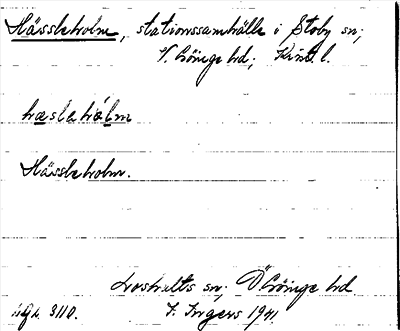 Hässleholm, stationssamhälle i Stoby sn;
V. Göinge hd; Krist. l.
hæslahålm
Hässleholm.
Loshults sn; Ö Göinge hd
3110. I. Ingers 1941.